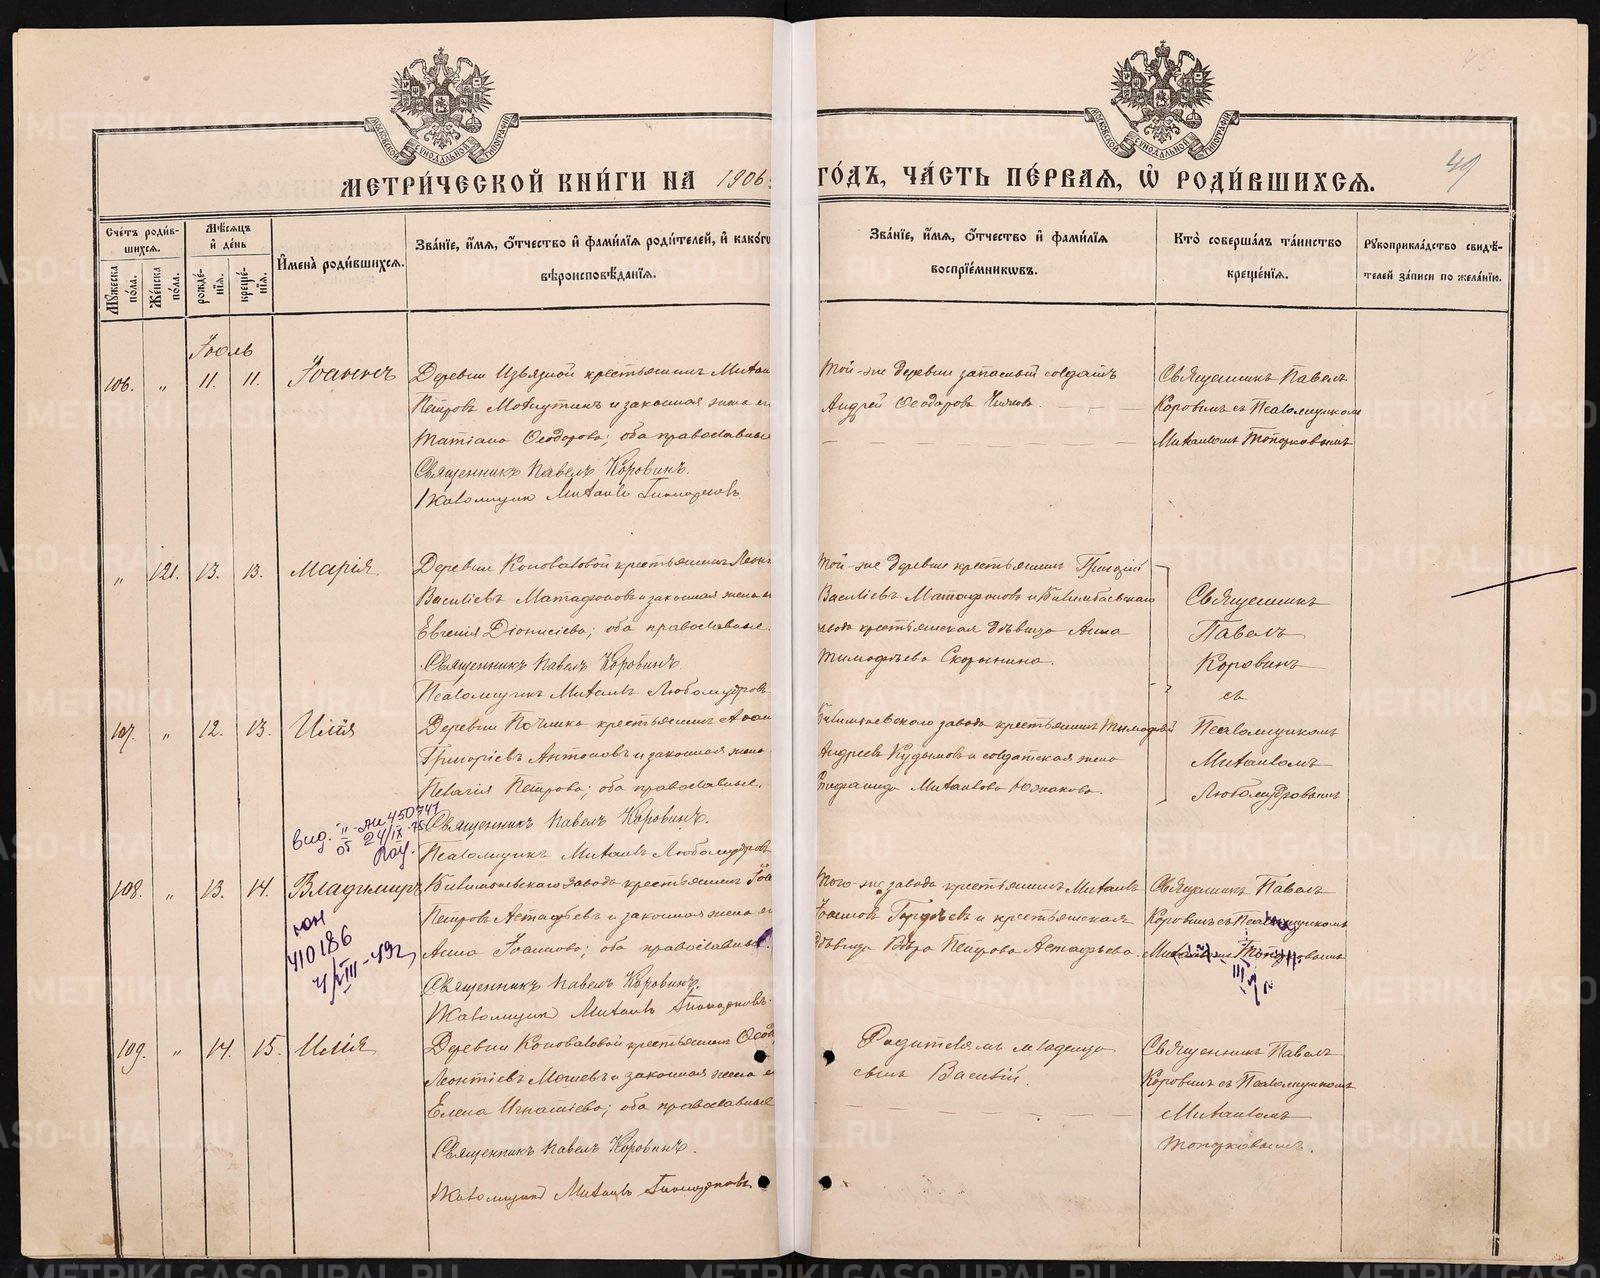 МОСКОВСКОЙ СѴНОДАЛЬНОЙ ТИПОГРАФІИ
МОСКОВСКОЙ СѴНОДАЛЬНОЙ ТИПОГРАФІИ
МЕТРИ́ЧЕСКОЙ КНИ́ГИ НА 1906
ГО́ДЪ, ЧА́СТЬ ПЕ́РВАЯ, Ѡ҆ РОДИ́ВШИХСЯ.
49
Сче́тъ роди́в-
шихся.
Мꙋ́жеска по́ла.
Же́нска по́ла.
Мѣ́сяцъ и҆ де́нь
рожде́-
нїя.
креще́-
нїя.
И҆мена̀ роди́вшихся.
Зва́нїе, и҆́мя, ѻ҆́тчество и҆ фами́лїя роди́телей, и҆ како́гѡ
вѣроисповѣ́данїя.
Зва́нїе, и҆́мя, ѻ҆́тчество и҆ фами́лїя
воспрїе́мникѡвъ.
Кто̀ соверша́лъ та́инство
креще́нїя.
Рꙋкоприкла́дство свидѣ́-
телей за́писи по жела́нїю.
Іюль
106. " 11. 11. Іоаннъ
Деревни Извязной крестьянинъ Михаи
Петровъ и законная жена е
Татіана Ѳеодорова; оба православные
Священникъ Павелъ Коровинъ.
Псаломщик Михаилъ
Той-же деревни запасный солдатъ
Андрей Ѳеодоровъ
Священникъ Павелъ
Коровинъ съ Псаломщикомъ
Михаиломъ
" 121. 13. 13. Марія
Деревни Коноваловой крестьянинъ Леон
Василіевъ Матафоновъ и законная жена е
Евгенія Діонисіева; оба православные.
Священникъ Павелъ Коровинъ
Псаломщикъ Михаилъ Любомудровъ
Той-же деревни крестьянинъ Григорій
Василіевъ Матафоновъ и Билимбаевскаго
завода крестьянская дѣвица Анна
Тимофѣева Скорынина.
Священникъ
Павелъ
Коровинъ
съ
107. " 12. 13. Илія
Деревни Починка крестьянинъ
Григоріевъ Антоновъ и законная жена
Пелагія Петрова; оба православные.
Священникъ Павелъ Коровинъ.
Псаломщикъ Михаилъ Любомудровъ
Билимбаевскаго завода крестьянинъ Тимофей
Андреевъ Кудымовъ и солдатская жена
Михаилова Южакова.
Псаломщикомъ
Михаиломъ
Любомудровымъ
выд. II-АИ 450747
об 24/IX-75
108. " 13. 14. Владиміръ
Билимбаевскаго завода крестьянинъ Іоа
Петровъ Астафьевъ и законная жена е
Анна Іоаннова; оба православные.
Священникъ Павелъ Коровинъ.
Псаломщик Михаилъ
Того-же завода крестьянинъ Михаилъ
Іоанновъ Гордѣевъ и крестьянская
дѣвица Вѣра Петрова Астафьева.
Священникъ Павелъ
Коровинъ съ Псаломщикомъ
юн
410186
4/VIII-49г
109. " 14. 15. Илія
Деревни Коноваловой крестьянинъ Ѳеод
Леонтіевъ Мошевъ и законная жена е
Елена Игнатіева; оба православные
Священникъ Павелъ Коровинъ.
Псаломщикъ Михаилъ
Родителямъ младенца
сынъ Василій.
Священникъ Павелъ
Коровинъ съ Псаломщикомъ
Михаиломъ
METRIKI.GASO-URAL.RU